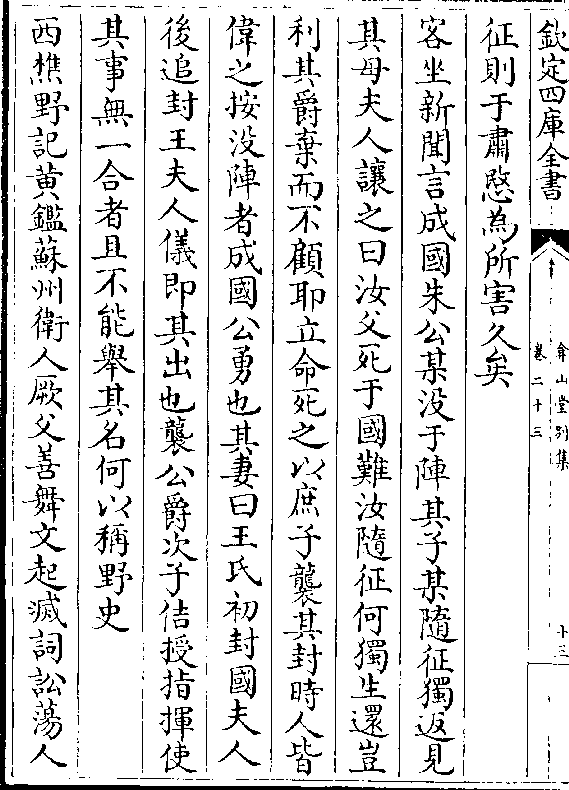 欽定四庫全書
弇山堂别集
卷二十三
十三
征則于肅愍為所害久矣
客坐新聞言成國朱公某没于陣其子某隨征獨返見
其母夫人讓之曰汝父死于國難汝隨征何獨生還豈
利其爵棄而不顧耶立命死之以庶子襲其封時人皆
偉之按没陣者成國公勇也其妻曰王氏初封國夫人
後追封王夫人儀即其出也襲公爵次子佶授指揮使
其事無一合者且不能舉其名何以稱野史
西樵野記黄鑑蘇州衛人厥父善舞文起滅詞訟蕩人